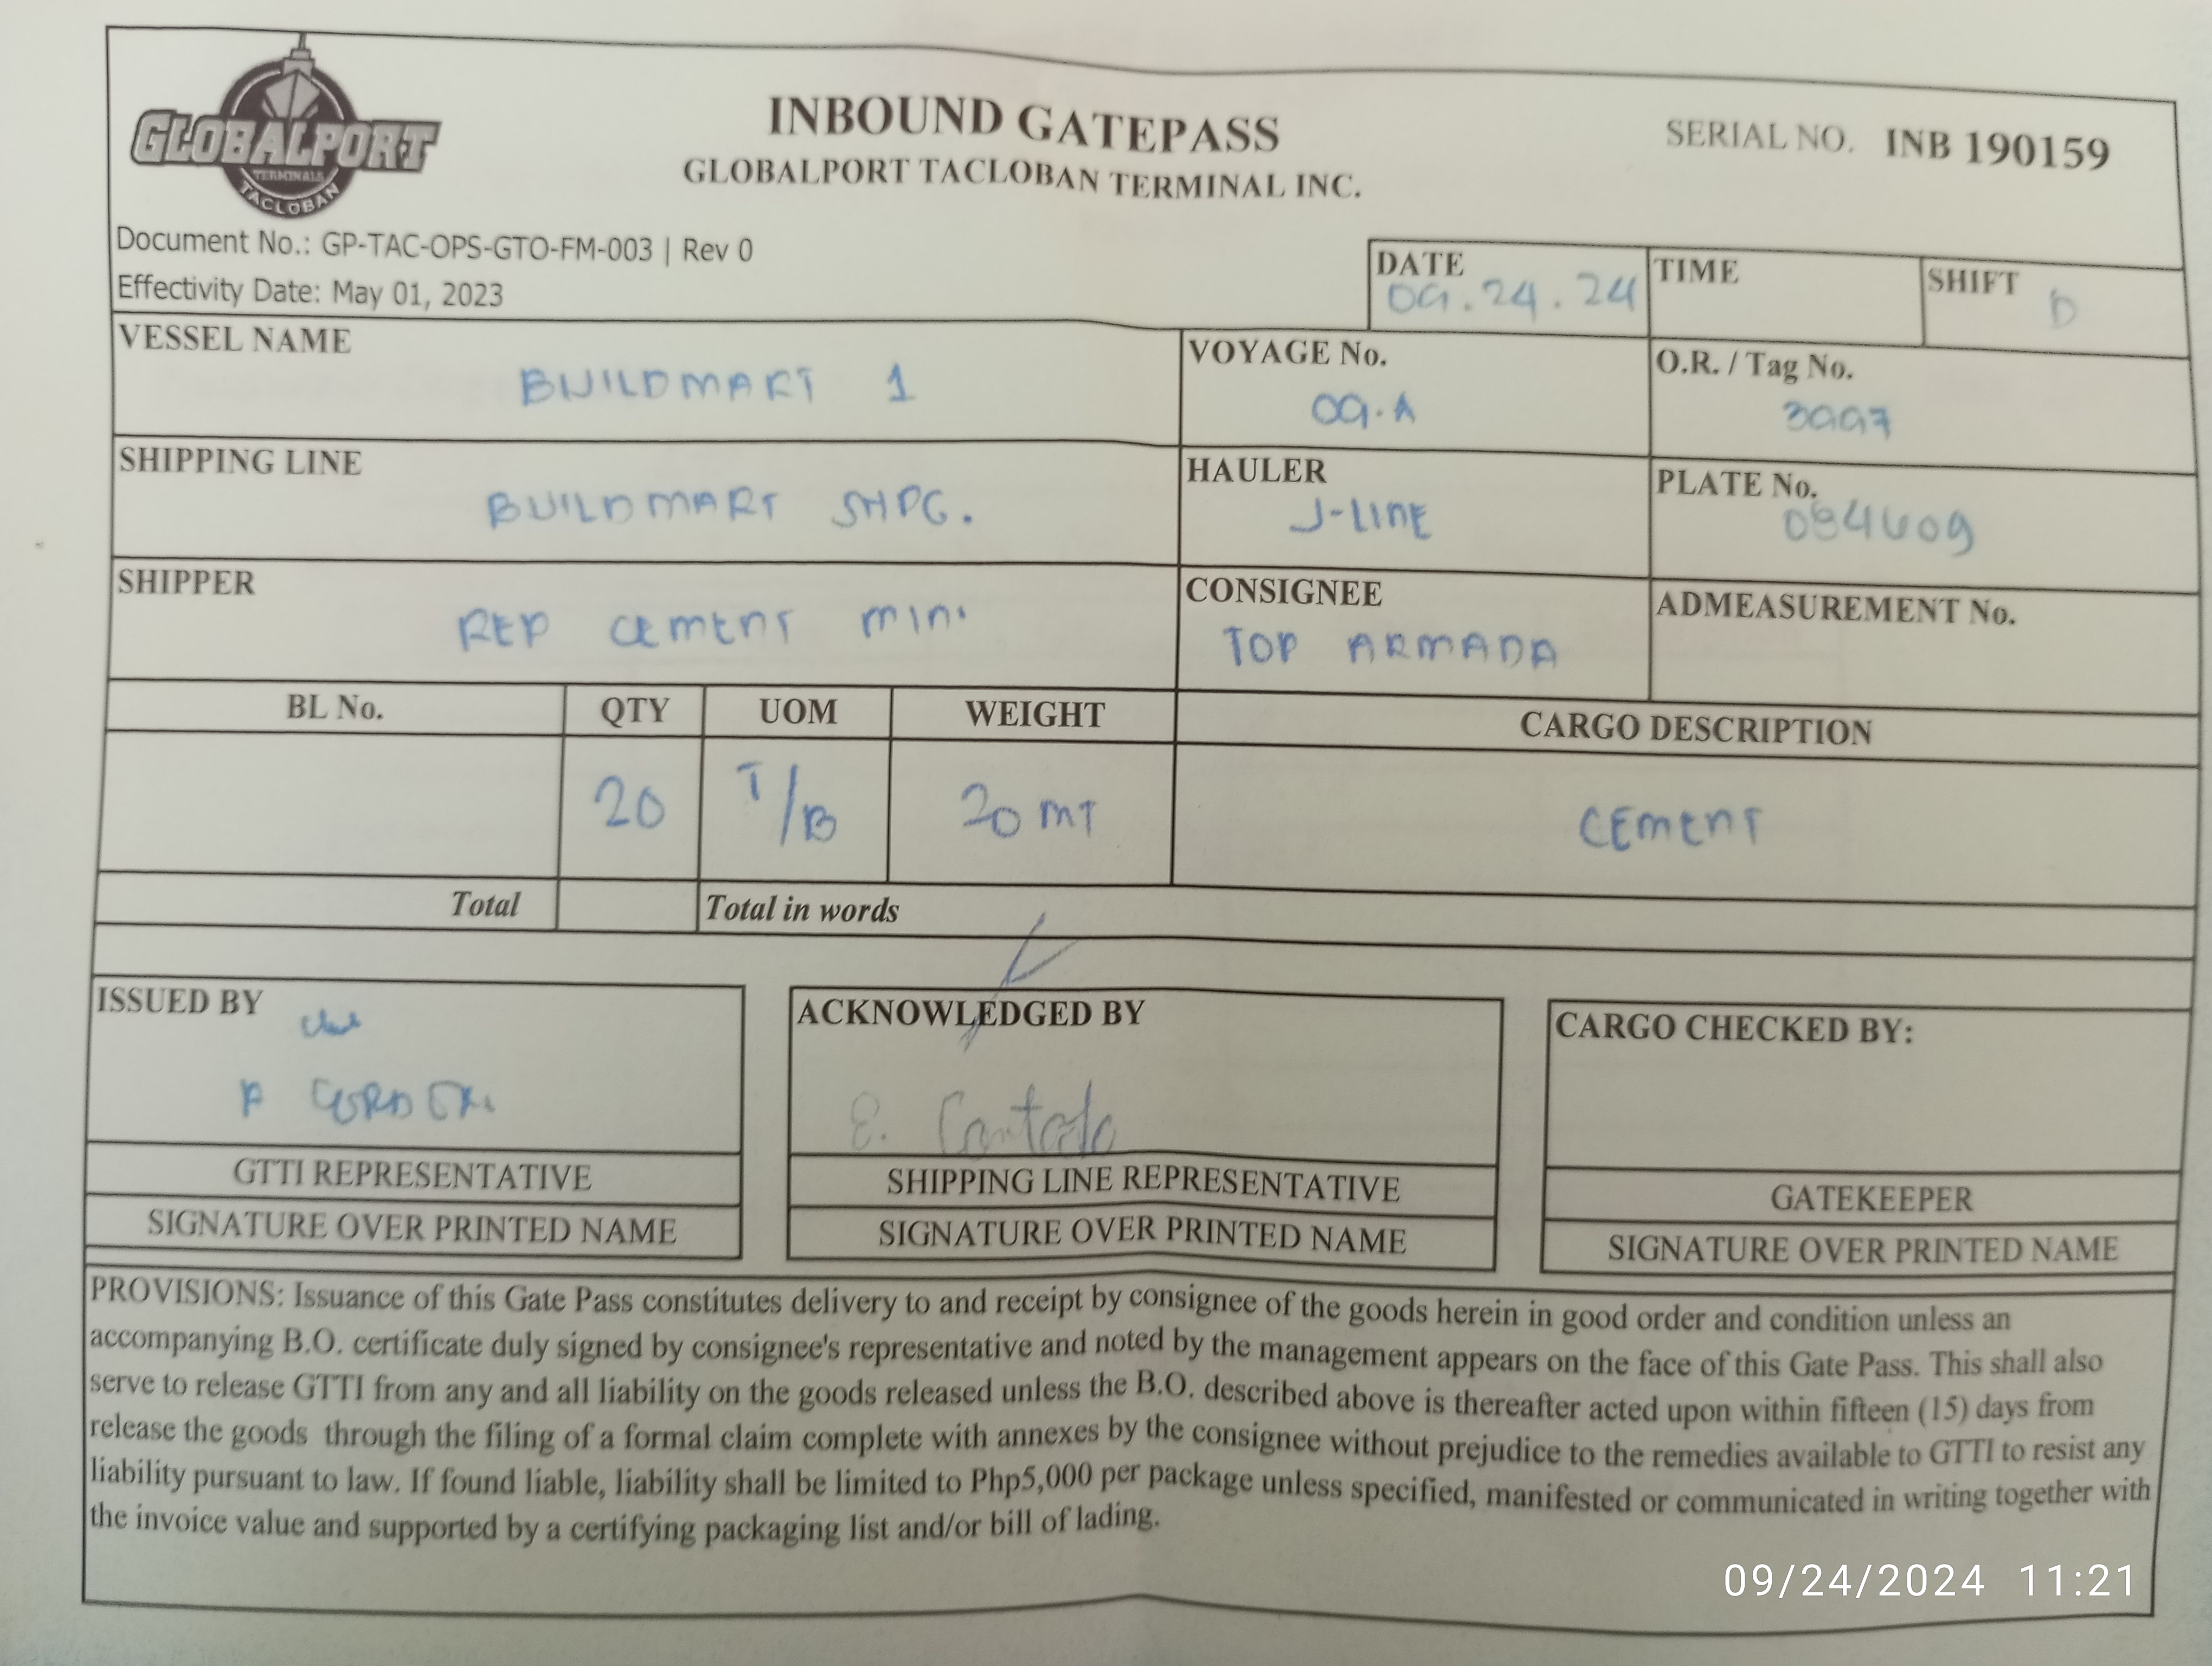 GLOBALPORT
TERMINALS
TACLOBAN
INBOUND GATEPASS
GLOBALPORT TACLOBAN TERMINAL INC.
SERIAL NO. INB 190159
Document No.: GP-TAC-OPS-GTO-FM-003 | Rev 0
Effectivity Date: May 01, 2023
DATE
09.24.24
TIME
SHIFT
D
VESSEL NAME
BUILDMART 1
VOYAGE No.
09.A
O.R. / Tag No.
3997
SHIPPING LINE
BUILDMART SHPG.
HAULER
J-LINE
PLATE No.
SHIPPER
REP CEMENT MIN.
CONSIGNEE
TOP ARMADA
ADMEASUREMENT No.
BL No. QTY UOM WEIGHT CARGO DESCRIPTION
20 T/B 20 MT CEMENT
Total
Total in words
ISSUED BY
ACKNOWLEDGED BY
E.
CARGO CHECKED BY:
GTTI REPRESENTATIVE
SIGNATURE OVER PRINTED NAME
SHIPPING LINE REPRESENTATIVE
SIGNATURE OVER PRINTED NAME
GATEKEEPER
SIGNATURE OVER PRINTED NAME
PROVISIONS: Issuance of this Gate Pass constitutes delivery to and receipt by consignee of the goods herein in good order and condition unless an
accompanying B.O. certificate duly signed by consignee's representative and noted by the management appears on the face of this Gate Pass. This shall also
serve to release GTTI from any and all liability on the goods released unless the B.O. described above is thereafter acted upon within fifteen (15) days from
release the goods through the filing of a formal claim complete with annexes by the consignee without prejudice to the remedies available to GTTI to resist any
liability pursuant to law. If found liable, liability shall be limited to Php5,000 per package unless specified, manifested or communicated in writing together with
the invoice value and supported by a certifying packaging list and/or bill of lading.
09/24/2024 11:21